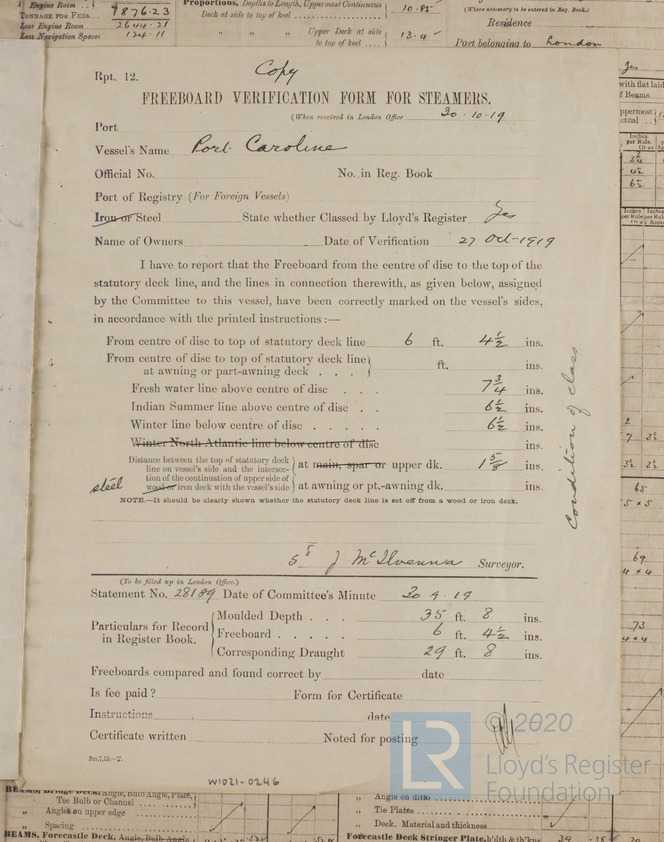 Engine Room
TONNAGE FOR FEES... 7876.23
Less Engine Room 2644.21
Less Navigation Spaces 124.11
Proportions, Depths to Length, Uppermost Continuous
Deck at side to top of keel 10.85
" " Upper Deck at side
to top of keel 13.4
(Where necessary to be entered in Reg. Book.)
Residence
Port belonging to London
Rpt. 12.
Copy
FREEBOARD VERIFICATION FORM FOR STEAMERS.
(When received in London Office 30.10.19
Port
Vessel's Name Port Caroline
Official No. No. in Reg. Book
Port of Registry (For Foreign Vessels)
Iron or Steel State whether Classed by Lloyd's Register Yes
Name of Owners Date of Verification 27 Oct-1919
I have to report that the Freeboard from the centre of disc to the top of the
statutory deck line, and the lines in connection therewith, as given below, assigned
by the Committee to this vessel, have been correctly marked on the vessel's sides,
in accordance with the printed instructions :—
From centre of disc to top of statutory deck line 6 ft. 4½ ins.
From centre of disc to top of statutory deck line
at awning or part-awning deck . . . ft. ins.
Fresh water line above centre of disc . . . 7¾ ins.
Indian Summer line above centre of disc . . 6½ ins.
Winter line below centre of disc . . . . . 6½ ins.
Winter North Atlantic line below centre of disc ins.
Distance between the top of statutory deck
line on vessel's side and the intersec-
tion of the continuation of upper side of
wood or iron deck with the vessel's side
steel
at main, spar or upper dk. 1⅝ ins.
at awning or pt.-awning dk. ins.
NOTE.—It should be clearly shown whether the statutory deck line is set off from a wood or iron deck.
Condition of class
J McIlvenna Surveyor.
(To be filled up in London Office.)
Statement No. 28189 Date of Committee's Minute 30.9.19
Particulars for Record
in Register Book.
Moulded Depth . . . 35 ft. 8 ins.
Freeboard . . . . . 6 ft. 4½ ins.
Corresponding Draught 29 ft. 8 ins.
Freeboards compared and found correct by date
Is fee paid ? Form for Certificate
Instructions date
Certificate written Noted for posting
W1021-0246
LR
© 2020
Lloyd's Register
Foundation
Tee Bulb or Channel
" Angles on upper edge
" Spacing
BEAMS, Forecastle Deck, Angle, Bulb Angle
" Angle on ditto
" Tie Plates
" Deck. Material and thickness
Forecastle Deck Stringer Plate, b'dth & th'kns